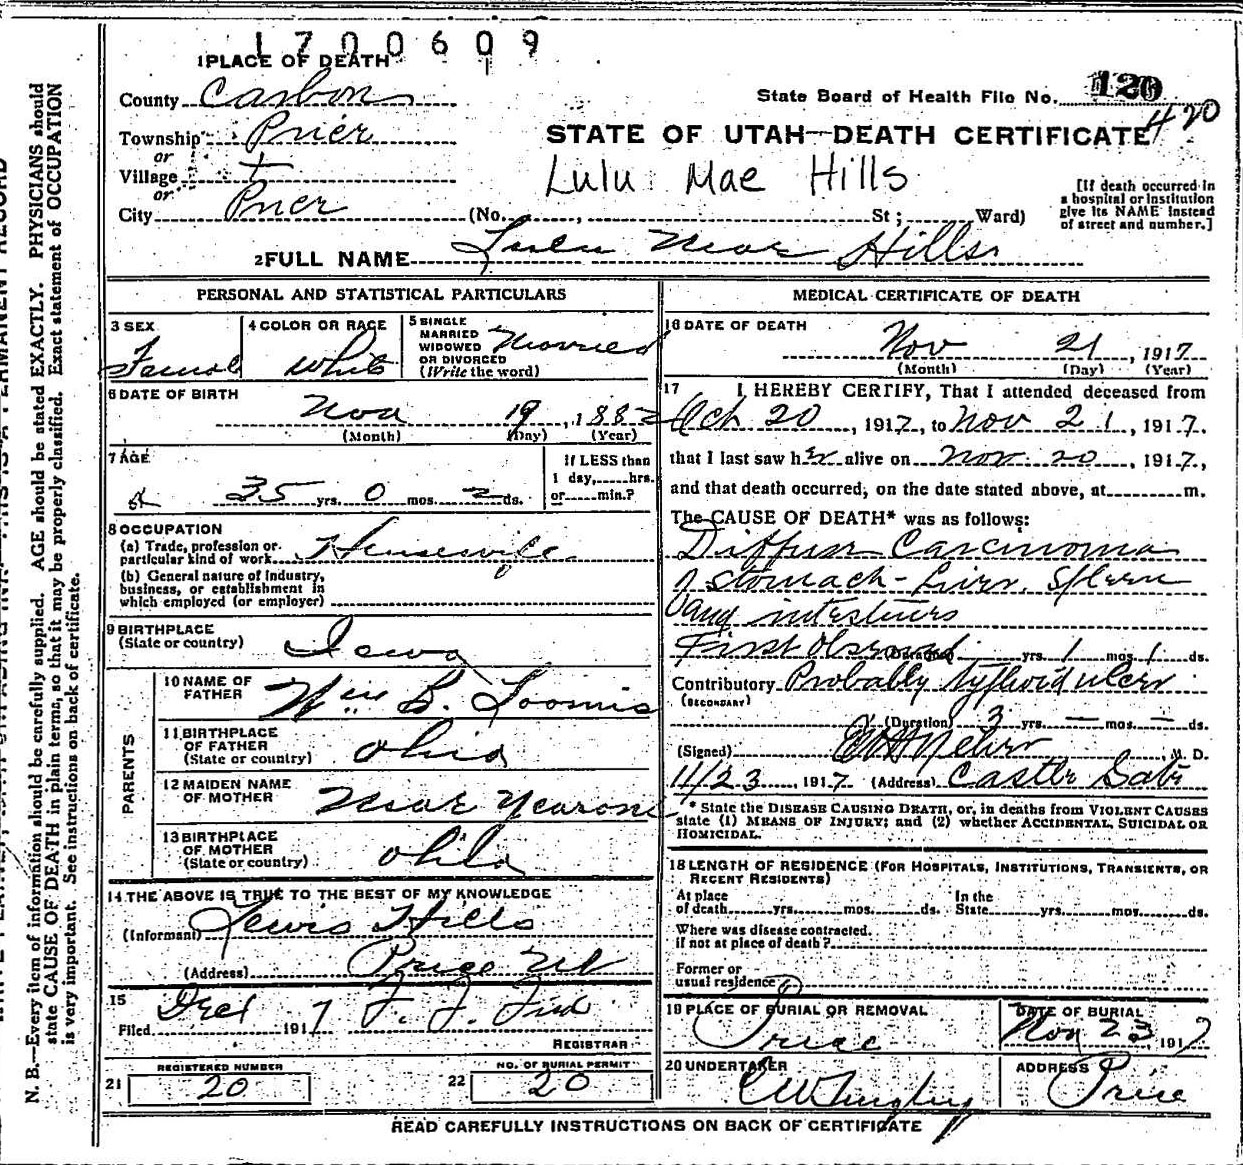 1700609
1 PLACE OF DEATH
County Carbon
State Board of Health File No. 120
420
Township Price
or
Village
or
City Price (No. , St; Ward)
STATE OF UTAH—DEATH CERTIFICATE
Lulu Mae Hills
[If death occurred in
a hospital or institution
give its NAME instead
of street and number.]
2 FULL NAME Lulu Mae Hills
PERSONAL AND STATISTICAL PARTICULARS
3 SEX
Female
4 COLOR OR RACE
White
5 SINGLE
MARRIED
WIDOWED
OR DIVORCED
(Write the word)
Married
6 DATE OF BIRTH
Nov 19, 1882
(Month) (Day) (Year)
7 AGE
35 yrs. 0 mos. 2 ds.
If LESS than
1 day, hrs.
or min.?
8 OCCUPATION
(a) Trade, profession or
particular kind of work Housewife
(b) General nature of industry,
business, or establishment in
which employed (or employer)
9 BIRTHPLACE
(State or country) Iowa
PARENTS
10 NAME OF
FATHER Wm B. Loomis
11 BIRTHPLACE
OF FATHER
(State or country) Ohio
12 MAIDEN NAME
OF MOTHER
13 BIRTHPLACE
OF MOTHER
(State or country) Ohio
14 THE ABOVE IS TRUE TO THE BEST OF MY KNOWLEDGE
(Informant) Lewis Hills
(Address) Price Ut
15
Filed Dec 1 1917
REGISTRAR
21
REGISTERED NUMBER
20
22
NO. OF BURIAL PERMIT
20
MEDICAL CERTIFICATE OF DEATH
16 DATE OF DEATH
Nov 21, 1917
(Month) (Day) (Year)
17 I HEREBY CERTIFY, That I attended deceased from
Oct 20, 1917, to Nov 21, 1917.
that I last saw her alive on Nov. 20, 1917,
and that death occurred, on the date stated above, at m.
The CAUSE OF DEATH* was as follows:
Diffuse Carcinoma
of stomach - Liver, Spleen
and intestines
First Observed (Duration) yrs. 1 mos. 1 ds.
Contributory Probably typhoid ulcer
(SECONDARY)
(Duration) 3 yrs. — mos. — ds.
(Signed) , M. D.
11/23, 1917 (Address) Castle Gate
* State the DISEASE CAUSING DEATH, or, in deaths from VIOLENT CAUSES
state (1) MEANS OF INJURY; and (2) whether ACCIDENTAL, SUICIDAL OR
HOMICIDAL.
18 LENGTH OF RESIDENCE (FOR HOSPITALS, INSTITUTIONS, TRANSIENTS, OR
RECENT RESIDENTS)
At place
of death yrs. mos. ds.
In the
State yrs. mos. ds.
Where was disease contracted.
if not at place of death?
Former or
usual residence
19 PLACE OF BURIAL OR REMOVAL
Price
DATE OF BURIAL
Nov 23 1917
20 UNDERTAKER
ADDRESS
Price
READ CAREFULLY INSTRUCTIONS ON BACK OF CERTIFICATE
N. B.—Every item of information should be carefully supplied. AGE should be stated EXACTLY. PHYSICIANS should
state CAUSE OF DEATH in plain terms, so that it may be properly classified. Exact statement of OCCUPATION
is very important. See instructions on back of certificate.